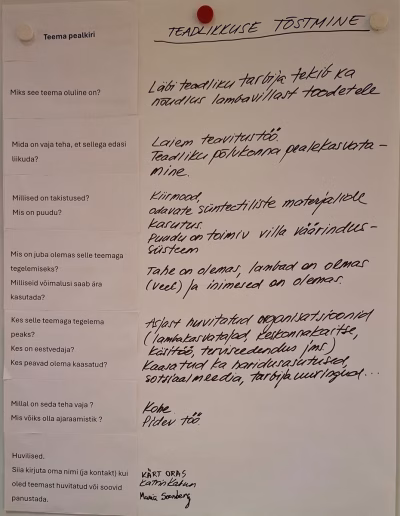 Teema pealkiri
TEADLIKKUSE TÕSTMINE
Miks see teema oluline on?
Läbi teadliku tarbija tekib ka
nõudlus lambavillast toodetele
Mida on vaja teha, et sellega edasi
liikuda?
Laiem teavitustöö.
Teadliku põlvkonna pealekasvata-
mine.
Millised on takistused?
Mis on puudu?
Kiirmood,
odavate süntectiliste materjalide
kasutus.
Puudu on toimiv villa väärindus-
süsteem
Mis on juba olemas selle teemaga
tegelemiseks?
Milliseid võimalusi saab ära
kasutada?
Tahe on olemas, lambad on olemas
(veel) ja inimesed on olemas.
Kes selle teemaga tegelema
peaks?
Kes on eestvedaja?
Kes peavad olema kaasatud?
Asjast huvitatud organisatsioonid
(lambakasvatajad, keskonnakaitse,
käsitöö, terviseedendus jms)
Kaasatud ka haridusasutused,
sotsiaalmeedia, tarbijauuringud...
Millal on seda teha vaja ?
Mis võiks olla ajaraamistik ?
Kohe
Pidev töö.
Huvilised.
Siia kirjuta oma nimi (ja kontakt) kui
oled teemast huvitatud või soovid
panustada.
KÄRT ORAS
Katrin
Maria